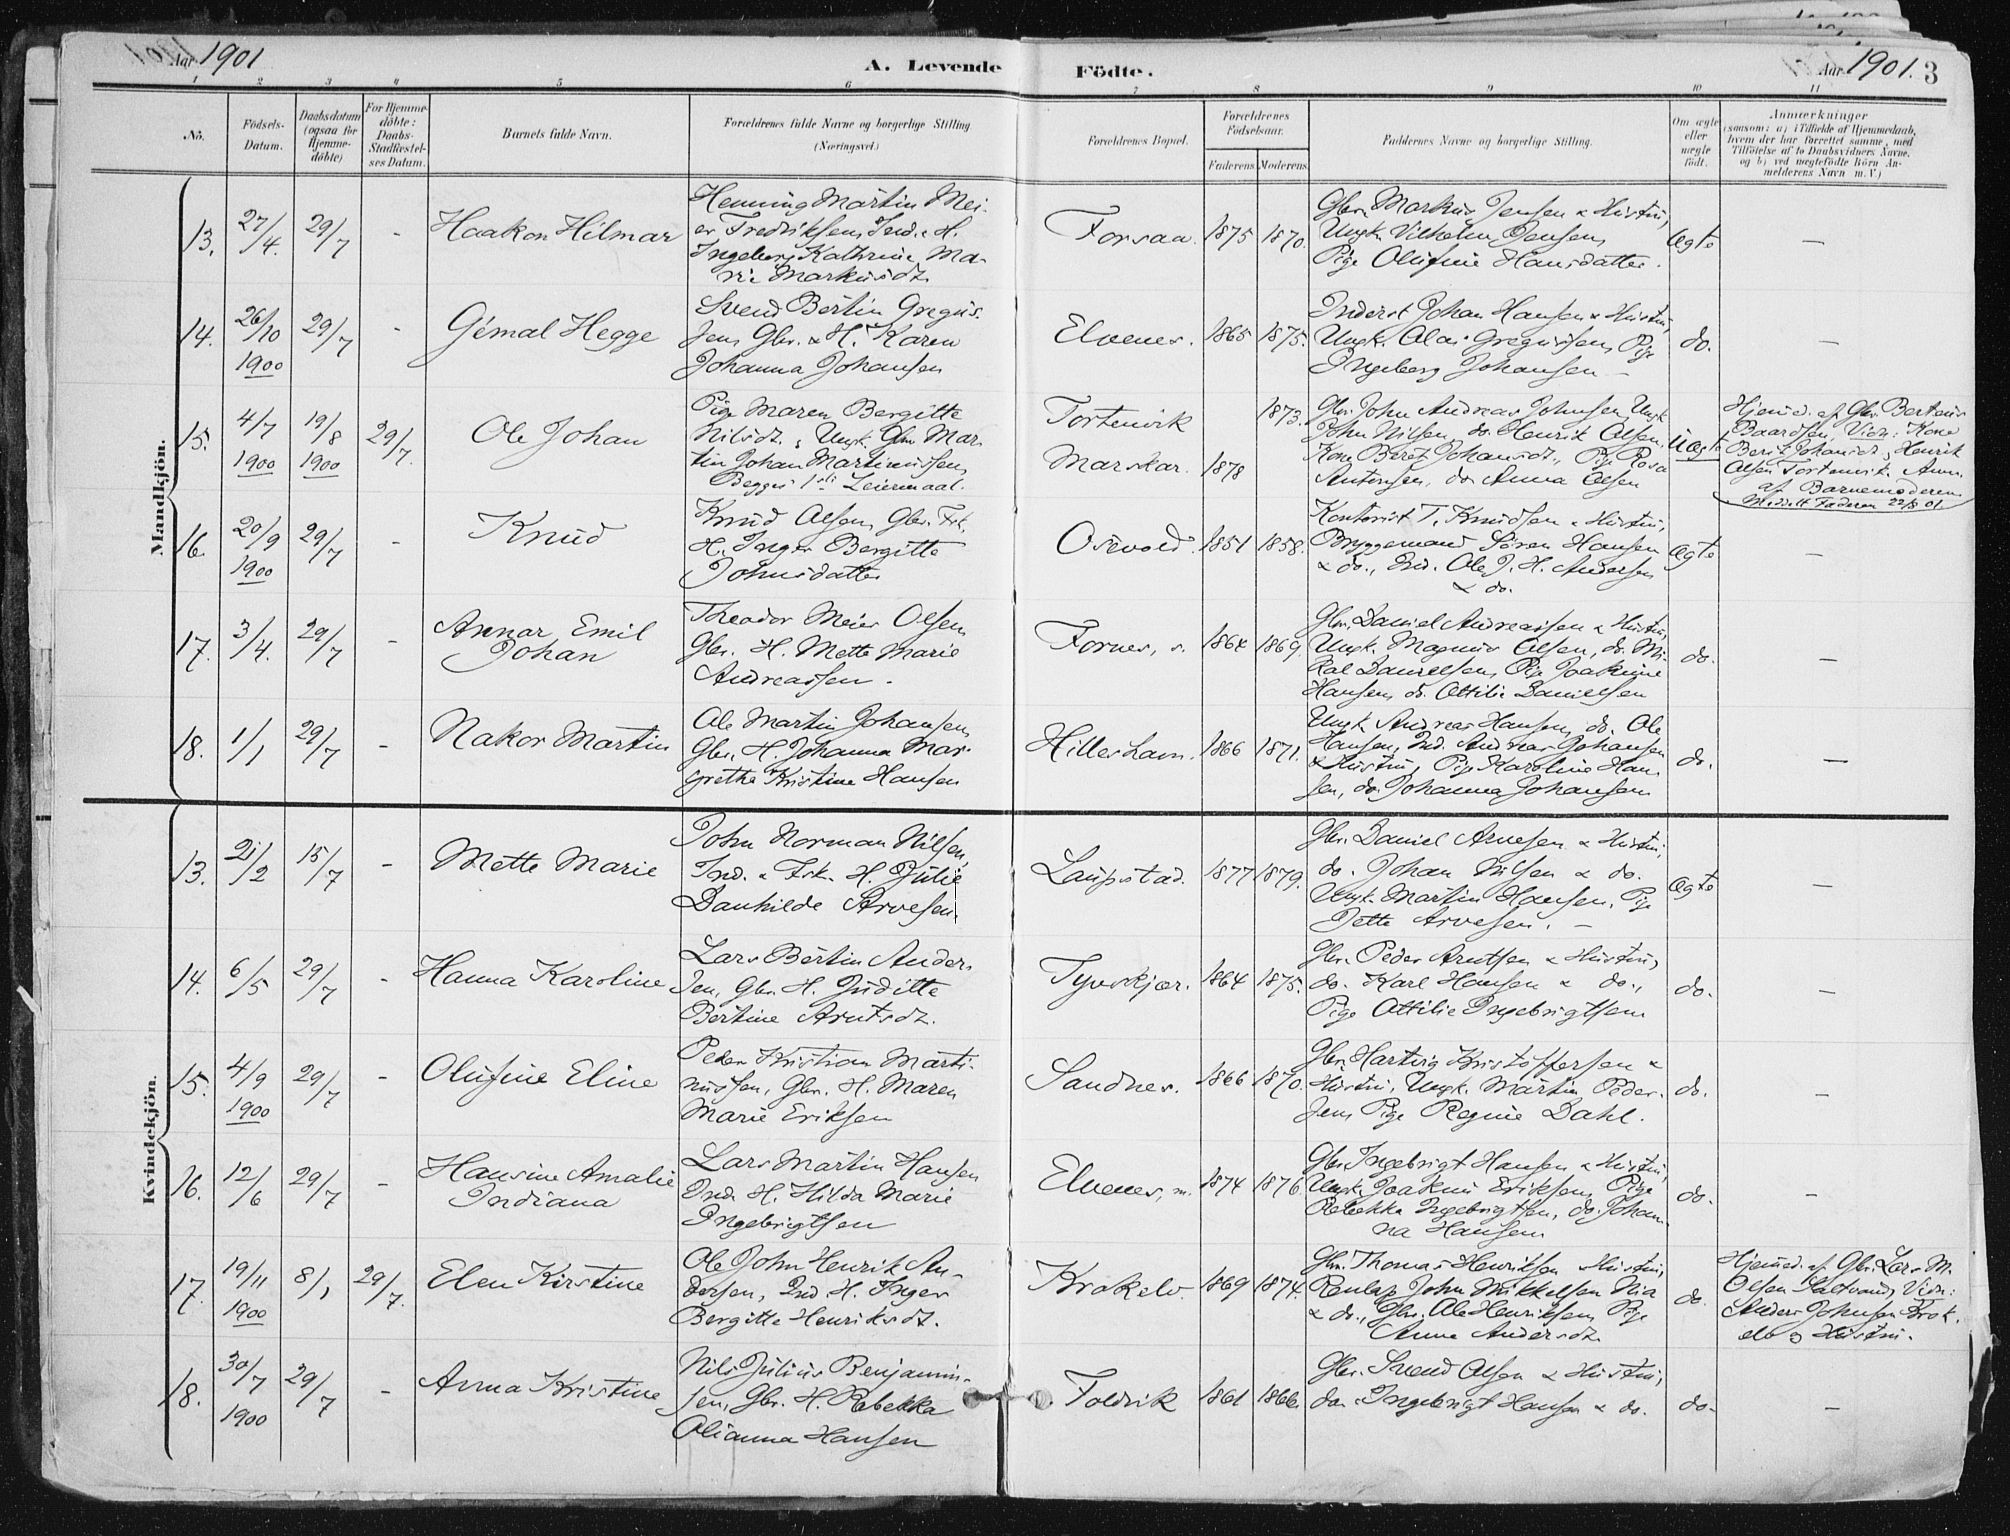 Aar 1901
A. Levende Födte.
Aar 1901. 3
1 2 3 4 5 6 7 8 9 10 11
No.
Födsels-
Datum.
Daabsdatum
(ogsaa for
Hjemme-
döbte)
For Hjemme-
döbte:
Daabs-
Stadfæstel-
ses Datum.
Barnets fulde Navn.
Forældrenes fulde Navne og borgerlige Stilling
(Næringsvei.)
Forældrenes Bopæl.
Forældrenes
Födselsaar.
Faderens Moderens
Faddernes Navne og borgerlige Stilling.
Om ægte
eller
uægte
födt.
Anmærkninger
(saasom: a) i Tilfælde af Hjemmedaab,
hvem der har forrettet samme, med
Tilföielse af to Daabsvidners Navne,
og b) ved uægtefödte Börn An-
melderens Navn m. V.)
Mandkjön.
13. 27/4. 29/7 - Haakon Hilmar
Henning Martin Mei-
er Fredriksen, Ind. H.
Ingeborg Kathrine Ma-
rie Markusdt.
Forsaa. 1875 1870.
Gbr. Markus Jensen & Hustru,
Ungk. Vilhelm Jensen,
Pige Olufine Hansdatter.
Ægte —
14. 26/10 1900 29/7 - Gémal Hegge
Svend Bertin Gregus-
sen, Gbr. & H. Karen
Johanna Johansen
Elvenes. 1865 1875.
Inderst Johan Hansen & Hustru,
Ungk. Olai Gregussen, Pige
Ingeborg Johansen —
do. —
15. 4/7 1900 19/8 1900 29/7. Ole Johan
Pige Maren Bergitte
Nilsdt., Ungk. Gbr. Mar-
tin Johan Martinussen,
Begges 1ste Leiermaal.
Tortenvik 1873.
Marskar. 1878
Gbr. John Andreas Johnsen, Ungk.
John Nilsen, do. Henrik Olsen,
Kone Beret Johansdt., Pige Rosa
Antonsen, do Anna Olsen
Uægte
Hjemmed. af Gbr. Berteus
Baardsen, Vidn: Kone
Berit Johansdt, Henrik
Olsen Tortenvik. Anm.
af Barnemoderen
Meddelt Faderen 22/8 01.
16. 20/9 1900 29/7 - Knud
Knud Olsen, Gbr. Fsk.
H. Inger Bergitte
Johnsdatter
Osevold. 1851 1858.
Kontorist T. Knudsen & Hustru,
Bryggemand Sören Hansen
& do., Ind. Ole J. H. Andersen
& do.
Ægte —
17. 3/4. 29/7 - Annar Emil
Johan
Theodor Meier Olsen,
Gbr. H. Mette Marie
Andreassen.
Fornes, s. 1864 1869.
Gbr. Daniel Andreassen & Hustru,
Ungk. Magnus Olsen, do. Mi-
kal Danielsen, Pige Joakime
Hansen, do. Ottilie Danielsen
do. —
18. 1/1 29/7 - Nakor Martin
Ole Martin Johansen,
Gbr. H. Johanna Mar-
grethe Kristine Hansen
Hillesham. 1866 1871.
Ungk. Andreas Hansen, do. Ole
Hansen, Ind. Andreas Johansen
& Hustru, Pige Karoline Han-
sen, do. Johanna Johansen
do. —
Kvindekjön.
13. 21/2 15/7 - Mette Marie
John Norman Nilsen,
Ind. & Fsk. H. Julie
Danhilde Arvesen.
Laupstad. 1877 1879.
Gbr. Daniel Arvesen & Hustru,
do. Johan Nilsen & do.
Ungk. Martin Hansen, Pige
Jette Arvesen. —
Ægte —
14. 6/5 29/7 - Hanna Karoline
Lars Bertin Ander-
sen, Gbr. H. Juditte
Bertine Arntsdt.
Tyvskjær. 1864 1875.
Gbr. Peder Arntsen & Hustru,
do. Karl Hansen & do.,
Pige Ottilie Ingebrigtsen
do. —
15. 4/9 1900 29/7 - Olufine Eline
Peder Kristian Marti-
nussen, Gbr. H. Maren
Marie Eriksen
Sandnes. 1866 1870.
Gbr. Hartvig Kristoffersen &
Hustru, Ungk. Martin Peder-
sen, Pige Regine Dahl.
do. —
16. 12/6 29/7 - Hansine Amalie
Indiana
Lars Martin Hansen
Ind. H. Hilda Marie
Ingebrigtsen
Elvenes, m. 1874 1876.
Gbr. Ingebrigt Hansen & Hustru,
Ungk. Joakim Eriksen, Pige
Rebekka Ingebrigtsen, do. Johan-
na Hansen
do. —
17. 19/11 1900 8/1 29/7. Elen Kirstine
Ole John Henrik An-
dersen, Ind. H. Inger
Bergitte Henriksdt.
Krokelv. 1869 1874.
Gbr. Thomas Henriksen & Hustru,
Renlap John Mikkelsen Nia
& do., Gbr. Ole Henriksen, Pige
Anna Andersdt.
do.
Hjemmed. af Gbr. Lars M.
Olsen Saltvand, Vidn:
Anders Johnsen Krok-
elv & Hustru.
18. 30/7 1900 29/7 - Anna Kristine
Nils Julius Benjamin-
sen, Gbr. H. Rebekka
Olianna Hansen
Foldvik 1861 1866.
Gbr. Svend Olsen & Hustru,
do. Ingebrigt Hansen & do.
do. —